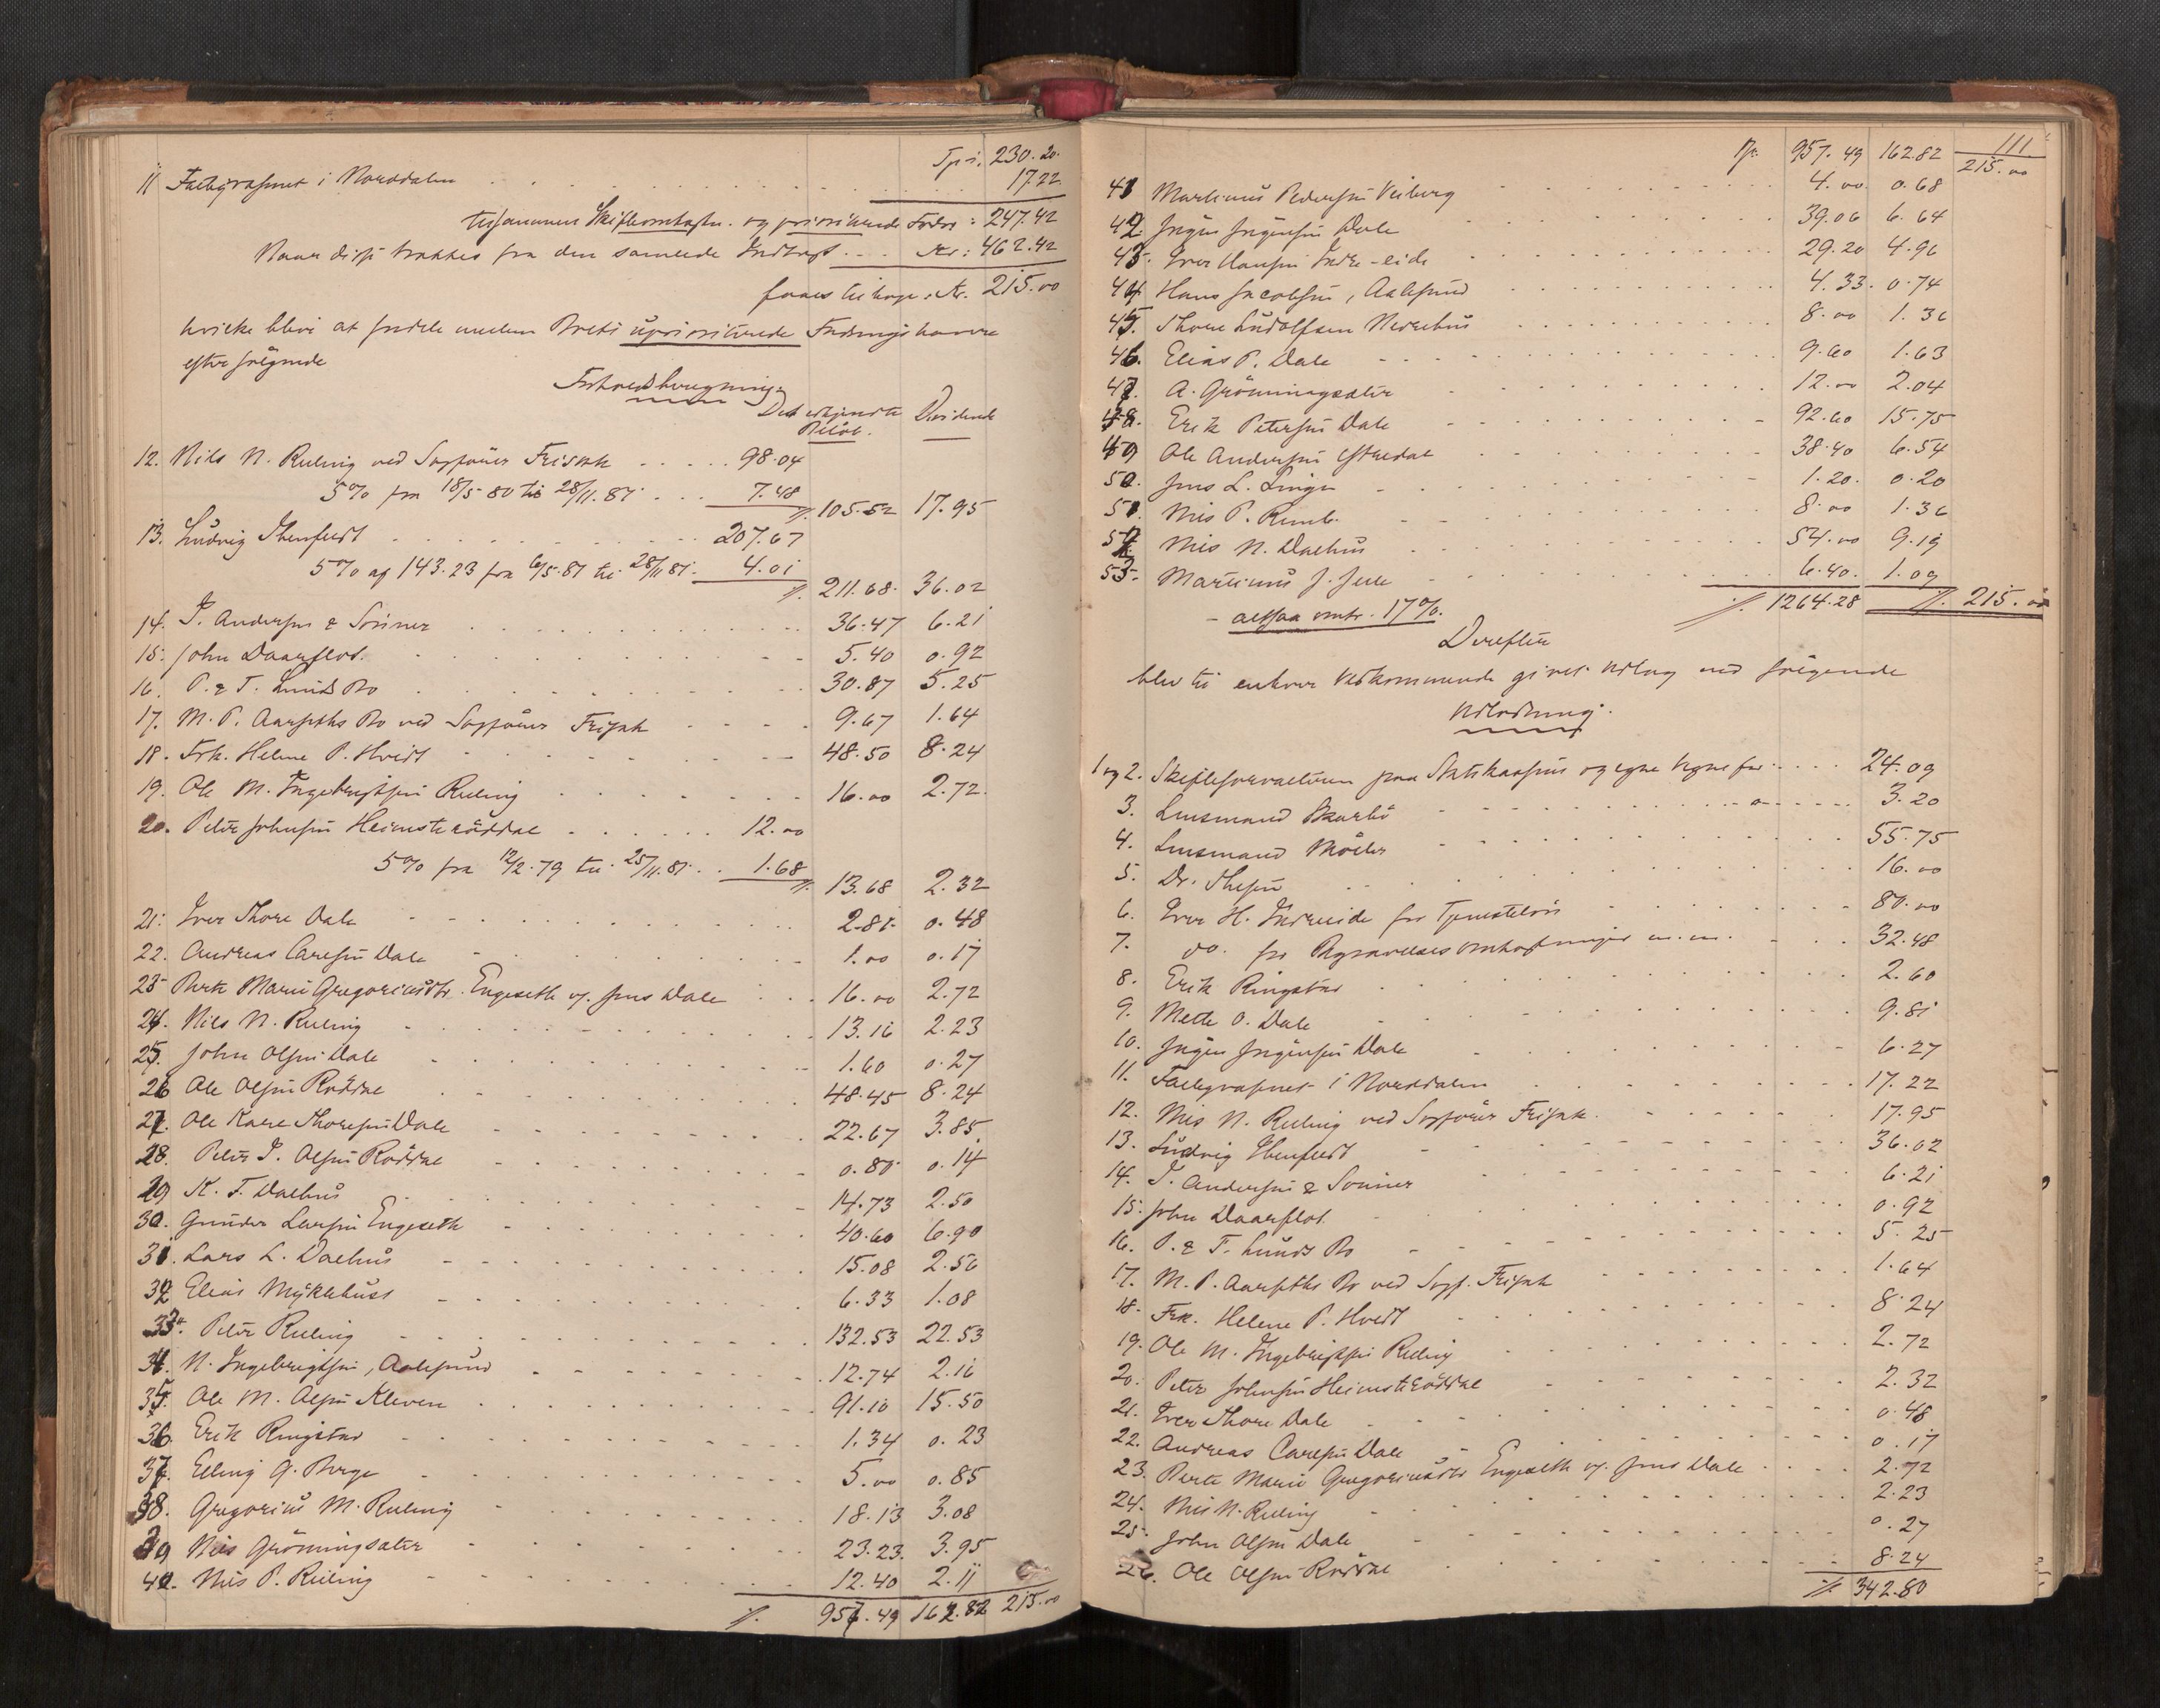 Tp. 230.20.
11 Fattigvæsenet i Norddalen 17.22
tilsammen Skifteomkostn. og prioriterede Fordr: 247.42
Naar disse trækkes fra den samlede Indtægt Kr: 462.42
faaes tilbage Kr. 215.00
hvilke blive at fordele mellem Boets uprioriterede Fordringshavere
efter følgende
Forholdsberegning
Det erkjendte Beløb. Dividende
12. Nils N. Reling ved Sagfører Frisak 98.04
5% fra 18/5 80 til 28/11.81 7.48
/. 105.52 17.95
13. Ludvig Ibenfeldt 207.67
5% af 143.23 fra 6/5.81 til 28/11 81. 4.01
/. 211.68. 36.02
14. I. Andersen & Sønner 36.47 6.21
15. John Daarflot. 5.40 0.92
16. P. & T. Lunds Bo 30.87 5.25
17. M. P. Aarseths Bo ved Sagfører Frisak 9.67 1.64
18. Frk. Helene P. Hvidt 48.50 8.24
19. Ole M. Ingebrigtsen Reling 16.00 2.72.
20. Peter Johnsen Heimsterøddal 12.00
5% fra 12/2.79 til 25/11.81. 1.68
/. 13.68 2.32
21. Iver Thore Dale 2.81. 0.48
22. Andreas Carlsen Dale 1.00 0.17
23 Berte Marie Gregoriusdtr. Engeseth og Jens Dale 16.00 2.72
24. Nils N. Reling 13.16 2.23
25. John Olsen Dale 1.60 0.27
26 Ole Olsen Røddal 48.45 8.24
27. Ole Kare Thoresen Dale 22.67 3.85.
28. Peter I. Olsen Røddal 0.80. 0.14
29 K. T. Dalhus 14.73 2.50
30. Gunder Larsen Engeseth 40.60 6.90
31. Lars L. Dalhus 15.08 2.56
32 Elias Myklebust 6.33 1.08
33. Peter Reling 132.53 22.53
34. N. Ingebrigtsen, Aalesund 12.74 2.16
35. Ole M. Olsen Kleven 91.10 15.50
36. Erik Ringstad 1.34 0.23
37. Elling G. Berge 5.00 0.85
38. Gregorius M. Reling 18.13 3.08
39 Nils Grønningsæter 23.23. 3.95
40. Nils P. Reling 12.40 2.11
/. 957.49 162.82 215.00
111
Tp. 957.49 162.82 215.00
41 Martinus Pedersen Veiberg 4.00. 0.68
42. Jørgen Jørgensen Dale 39.06 6.64
43. Iver Hansen Indre-eide 29.20 4.96
44 Hans Jacobsen, Aalesund 4.33. 0.74
45. Thore Ludolfsen Nedrehus 8.00 1.36
46. Elias P. Dale 9.60 1.63
47. A. Grønningsæter 12.00 2.04
48. Erik Petersen Dale 92.60 15.75
49 Ole Andersen 38.40 6.54
50. Jens L. Linge 1.20. 0.20
51. Nils P. 8.00 1.36
52. Nils N. Dalhus 54.00 9.19
53. Martinus J. 6.40. 1.09
/. 1264.28 /. 215.00
- altsaa omtr. 17%.
Derefter
blev til enhver Vedkommende givet Udlæg ved følgende
Udlodning.
1 og 2. Skifteforvalteren paa Statskassens og egne Vegne faar 24.09
3. Lensmand Skarbø 3.20
4. Lensmand Møller 55.75
5. Dr. Thesen 16.00
6. Iver H. Indreeide for Tjenesteløn 80.00
7. do. for Begravelsesomkostninger m.m. 32.48
8. Erik Ringstad 2.60
9. Mette O. Dale 9.81
10. Jørgen Jørgensen Dale 6.27
11. Fattigvæsenet i Norddalen 17.22
12. Nils N. Reling ved Sagfører Frisak. 17.95
13. Ludvig Ibenfeldt 36.02
14. I. Andersen & Sønner 6.21
15. John Daarflot. 0.92
16. P. & T. Lunds Bo 5.25
17. M. P. Aarseths Bo ved Sagf. Frisak 1.64
18. Frk. Helene P. Hvidt 8.24
19. Ole M. Ingebrigtsen Reling 2.72
20. Peter Johnsen Heimsterøddal 2.32
21. Iver Thore Dale 0.48
22. Andreas Carlsen Dale 0.17
23. Berte Marie Gregoriusdtr Engeseth og Jens Dale 2.72
24. Nils N. Reling 2.23
25. John Olsen Dale 0.27
26. Ole Olsen Røddal 8.24
/. 342.80